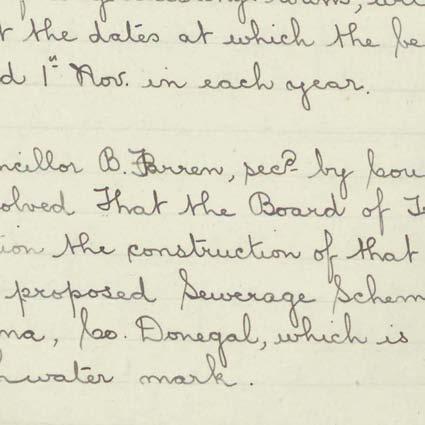 t the dates at which the be
d 1st Nov. in each year.
ncillor B. Farren, secd. by Cou
olved That the Board of T
ion the construction of that
proposed Sewerage Schem
na, Co. Donegal, which is
hwater mark.